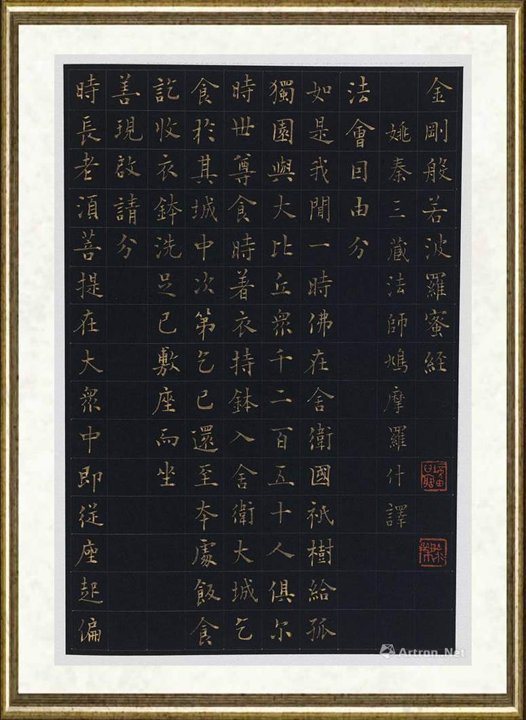 金剛般若波羅蜜經
姚秦三藏法師鳩摩羅什譯
法會因由分
如是我聞一時佛在舍衛國祇樹給孤
獨園與大比丘衆千二百五十人俱尔
時世尊食時着衣持鉢入舍衛大城乞
食於其城中次第乞已還至本處飯食
訖收衣鉢洗足已敷座而坐
善現啟請分
時長老須菩提在大衆中即從座起偏
Artron.Net